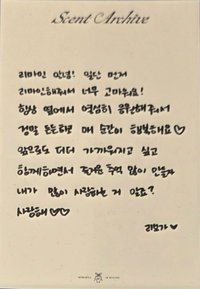 Scent Archive
리마인 안녕! 일단 먼저
리마인해줘서 너무 고마워요!
항상 옆에서 열심히 응원해줘서
정말 든든하고 매 순간이 행복해요♡
앞으로도 더더 가까워지고 싶고
함께하면서 즐거운 추억 많이 만들자
내가 많이 사랑하는 거 알죠?
사랑해♡♡
리브가 ♥